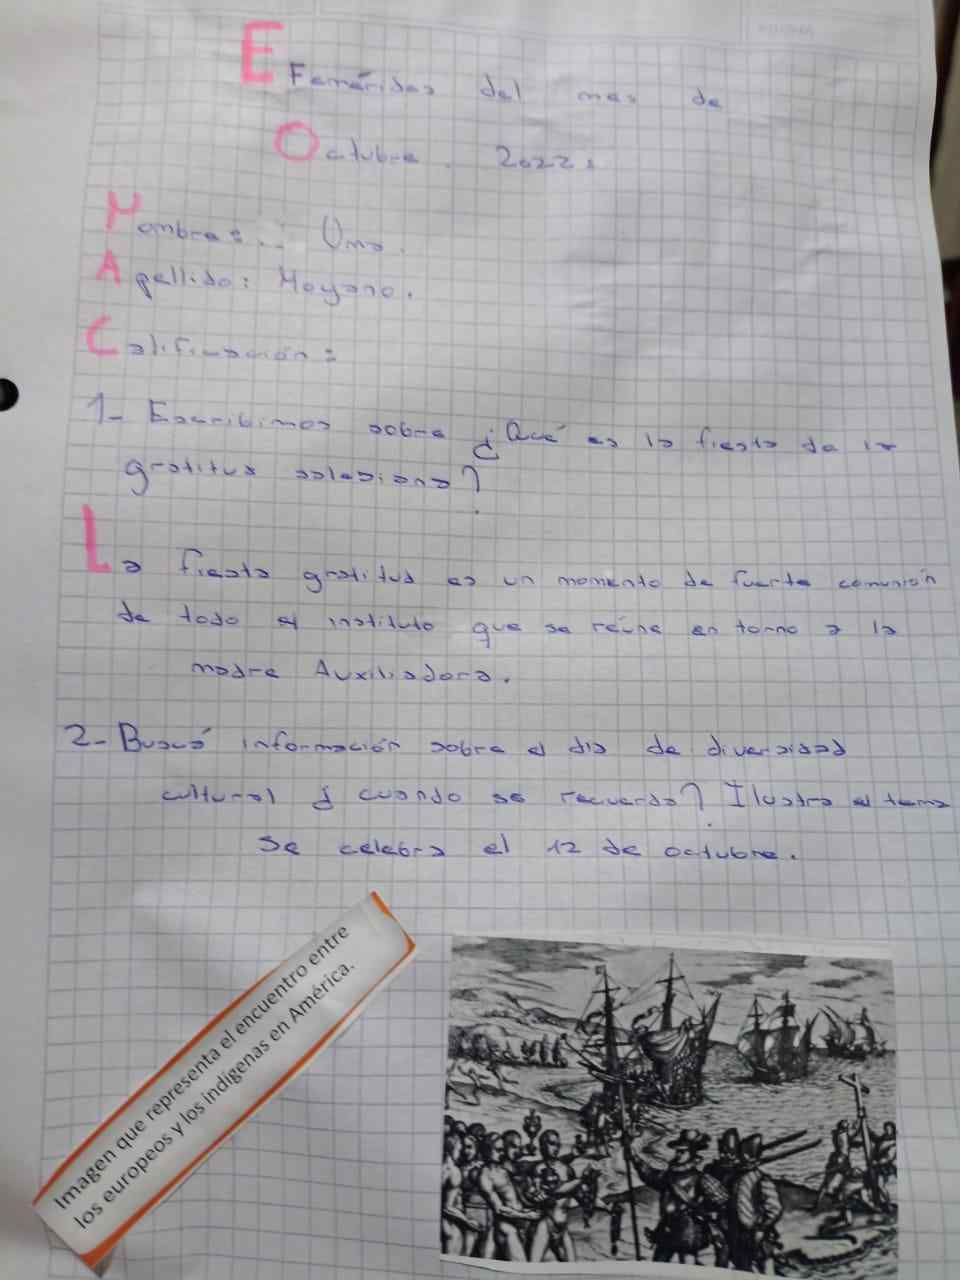 Efemérides del mes de
Octubre. 2022:
Nombre: Uma.
Apellido: Moyano.
Calificación:
1- Escribimos sobre ¿Qué es la fiesta de la
gratitus salesiana?
La fiesta gratitus es un momento de fuerte comunión
de todo el instituto que se reúne en torno a la
madre Auxiliadora.
2- Buscá información sobre el dia de diversidad
cultural ¿ cuando se recuerda? Ilustra el tema
Se celebra el 12 de octubre.
Imagen que representa el encuentro entre
los europeos y los indígenas en América.